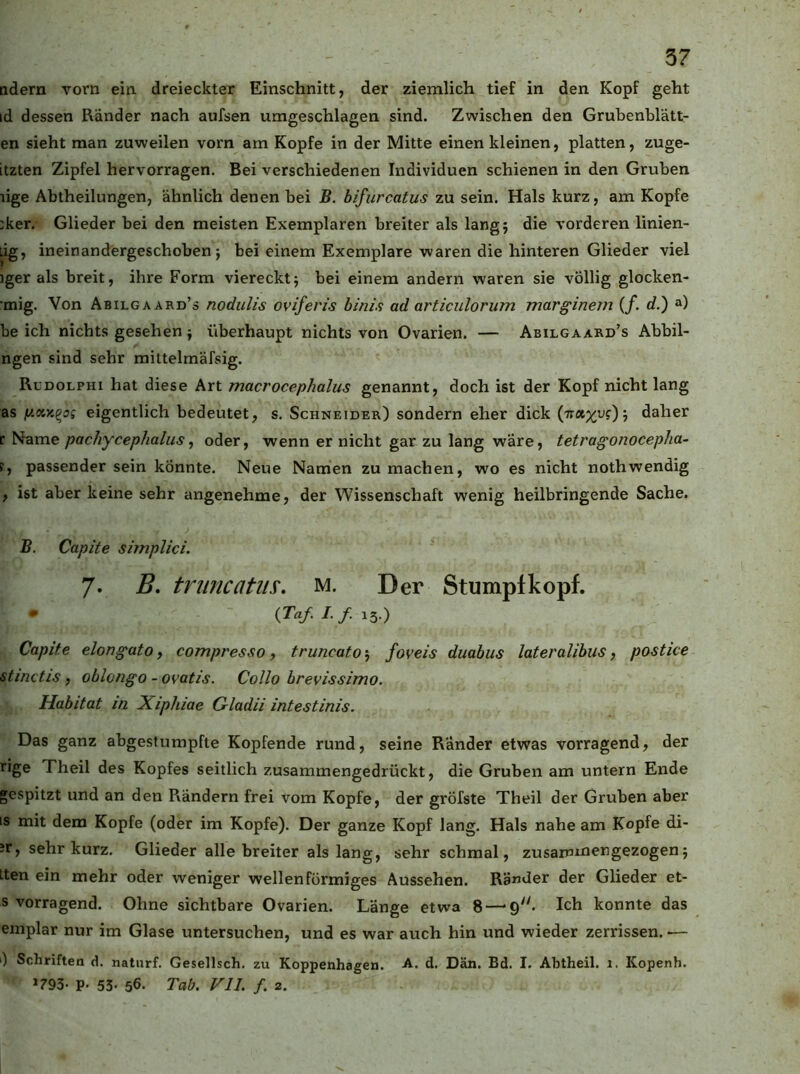 37
ndern vorn ein dreieckter Einschnitt, der ziemlich tief in den Kopf geht
id dessen Ränder nach aufsen umgeschlagen sind. Zwischen den Grubenblätt-
en sieht man zuweilen vorn am Kopfe in der Mitte einen kleinen, platten, zuge-
itzten Zipfel hervorragen. Bei verschiedenen Individuen schienen in den Gruben
nige Abtheilungen, ähnlich denen bei B. bifurcatus zu sein. Hals kurz, am Kopfe
cker. Glieder bei den meisten Exemplaren breiter als lang; die vorderen linien-
tig, ineinandergeschoben; bei einem Exemplare waren die hinteren Glieder viel
nger als breit, ihre Form viereckt; bei einem andern waren sie völlig glocken-
rmig. Von Abilgaard's nodulis oviferis binis ad articulorum marginem (f. d.) a)
be ich nichts gesehen; überhaupt nichts von Ovarien. — Abilgaard's Abbil-
ngen sind sehr mittelmäfsig.
Rudolphi hat diese Art macrocephalus genannt, doch ist der Kopf nicht lang
as μακρος eigentlich bedeutet, s. Schneider) sondern eher dick (παχυς); daher
r Name pachycephalus, oder, wenn er nicht gar zu lang wäre, tetragonocepha-
s, passender sein könnte. Neue Namen zu machen, wo es nicht nothwendig
, ist aber keine sehr angenehme, der Wissenschaft wenig heilbringende Sache.
B. Capite simplici.
7. B. truncatus. M. Der Stumpfkopf.
(Taf. I. f. 13.)
Capite elongato, compresso, truncato; foveis duabus lateralibus, postice
stinctis, oblongo-ovatis. Collo brevissimo.
Habitat in Xiphiae Gladii intestinis.
Das ganz abgestumpfte Kopfende rund, seine Ränder etwas vorragend, der
rige Theil des Kopfes seitlich zusammengedrückt, die Gruben am untern Ende
gespitzt und an den Rändern frei vom Kopfe, der gröfste Theil der Gruben aber
is mit dem Kopfe (oder im Kopfe). Der ganze Kopf lang. Hals nahe am Kopfe di-
er, sehr kurz. Glieder alle breiter als lang, sehr schmal, zusammengezogen;
tten ein mehr oder weniger wellenförmiges Aussehen. Ränder der Glieder et-
s vorragend. Ohne sichtbare Ovarien. Länge etwa 8—9". Ich konnte das
emplar nur im Glase untersuchen, und es war auch hin und wieder zerrissen. —
) Schriften d. naturf. Gesellsch. zu Koppenhagen. A. d. Dän. Bd. I. Abtheil. 1. Kopenh.
1793. p. 53. 56. Tab. VII. f. 2.